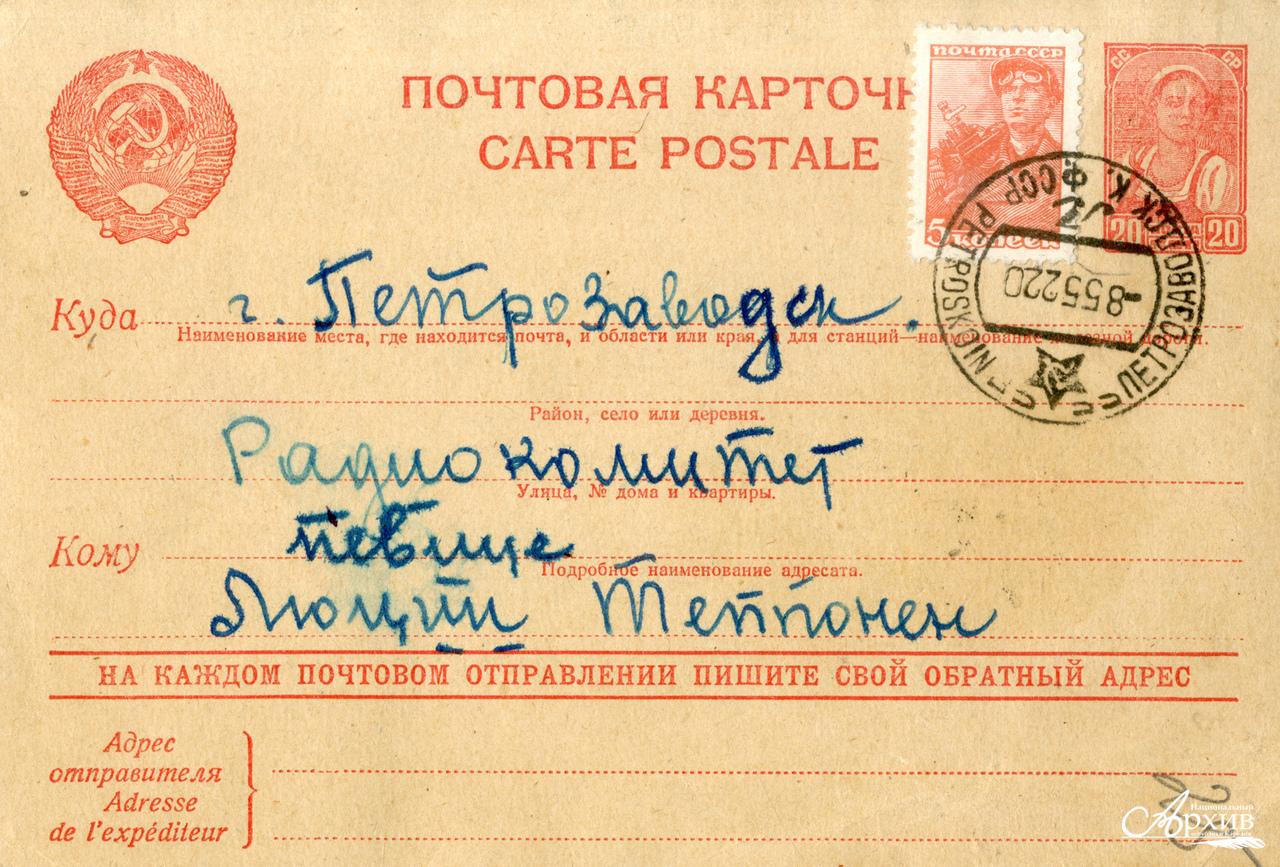 ПОЧТОВАЯ КАРТОЧ
CARTE POSTALE
ПОЧТА СССР
5 КОПЕЕК
СС СР
20 20
ПЕТРОЗАВОДСК К. Ф ССР PETROSKOI
-8 5 52 20
Куда г. Петрозаводск.
Наименование места, где находится почта, и области или края, а для станций—наименование железной дороги.
Район, село или деревня.
Радиокомитет
Улица, № дома и квартиры.
певице
Кому
Подробное наименование адресата.
Люции Теппонен
НА КАЖДОМ ПОЧТОВОМ ОТПРАВЛЕНИИ ПИШИТЕ СВОЙ ОБРАТНЫЙ АДРЕС
Адрес
отправителя
Adresse
de l'expéditeur
Национальный
Архив